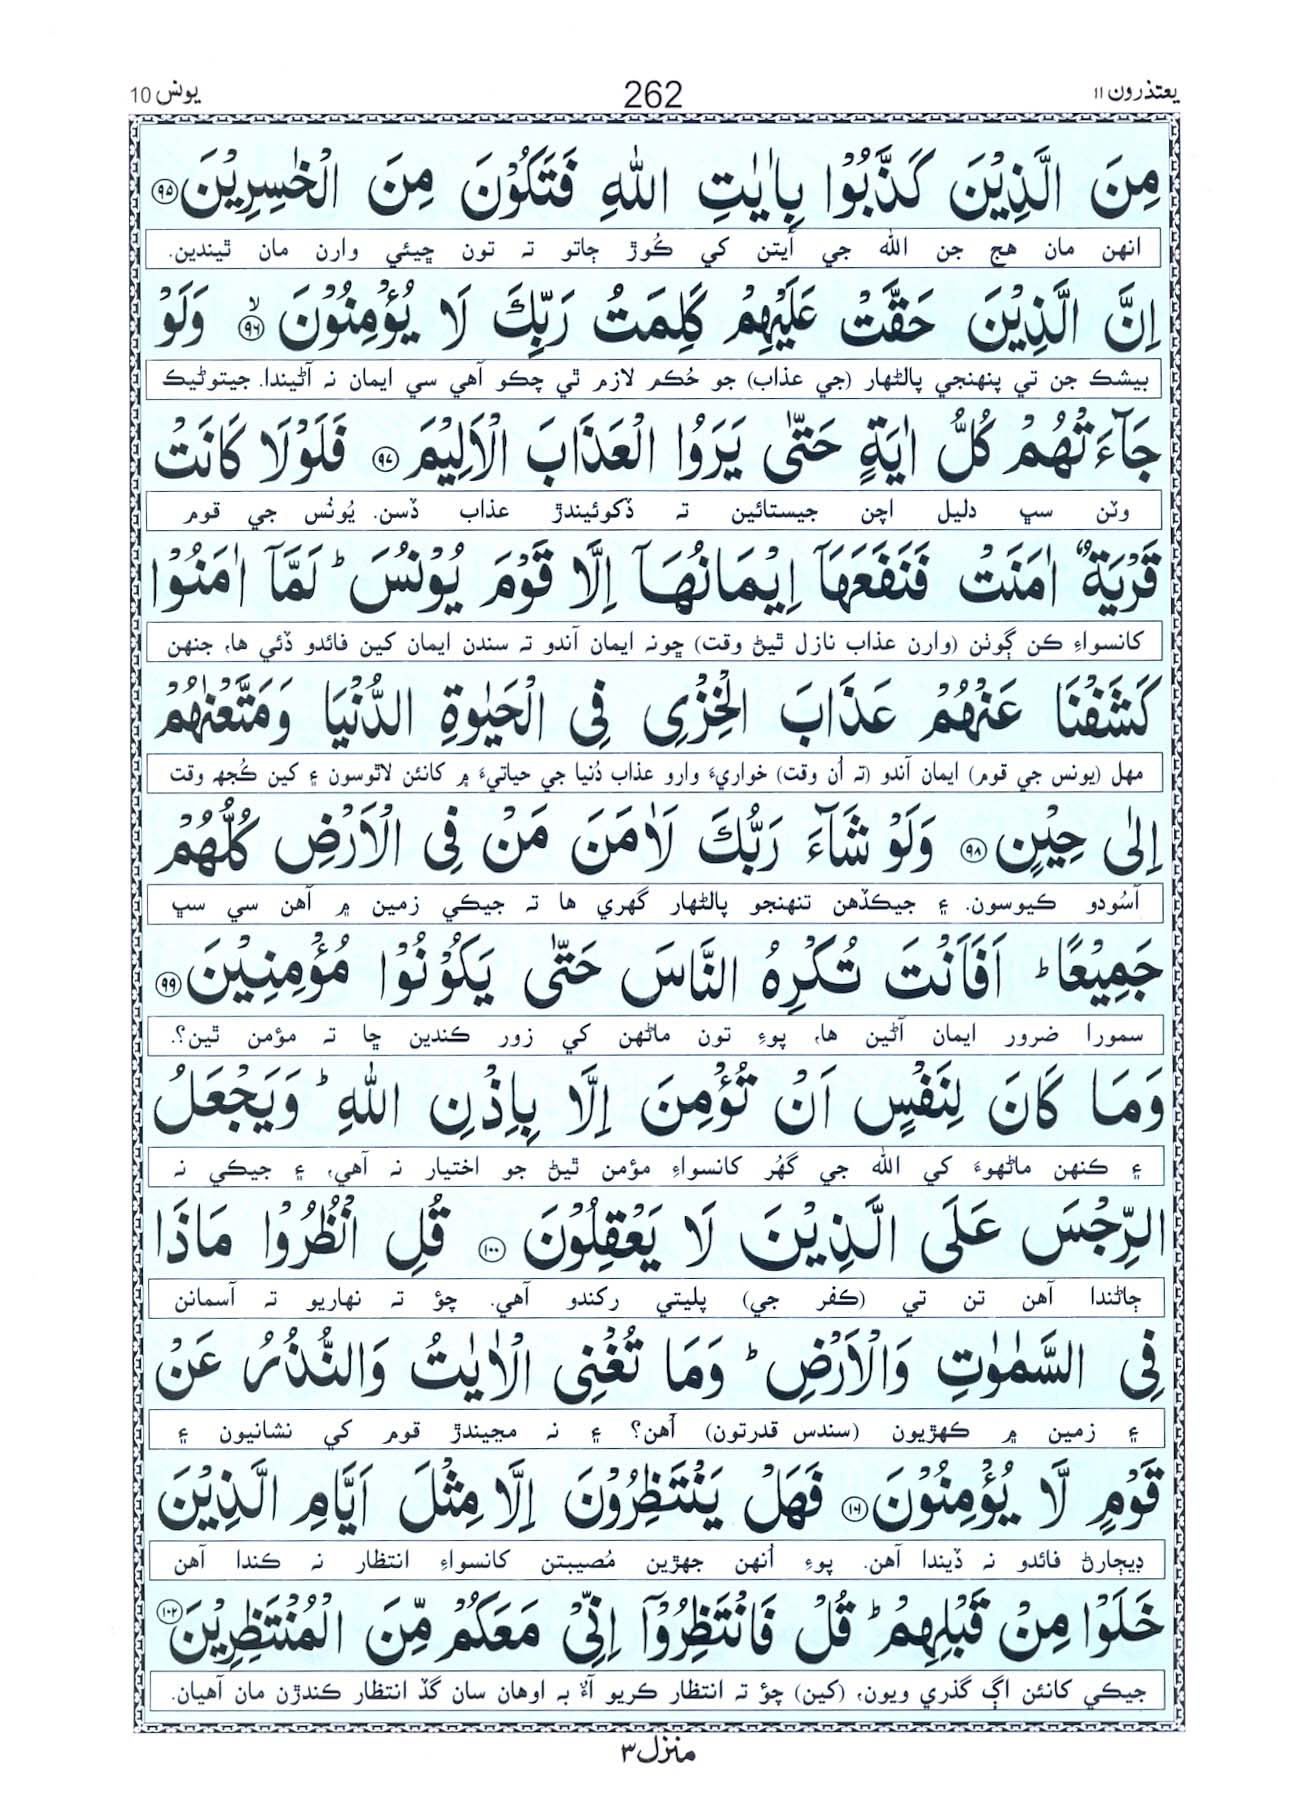 يعتذرون ۱۱ 262 يونس 10
مِنَ الَّذِيْنَ كَذَّبُوْا بِاٰيٰتِ اللّٰهِ فَتَكُوْنَ مِنَ الْخٰسِرِيْنَ ۝۹۵
انهن مان هج جن الله جي آيتن کي ڪُوڙ ڄاتو تہ تون ڇيئي وارن مان ٿيندين.
اِنَّ الَّذِيْنَ حَقَّتْ عَلَيْهِمْ كَلِمَتُ رَبِّكَ لَا يُؤْمِنُوْنَ ۝۹۶ۙ وَلَوْ
بيشڪ جن تي پنهنجي پالڻهار (جي عذاب) جو حُڪم لازم ٿي چڪو آهي سي ايمان نہ آڻيندا. جيتوڻيڪ
جَآءَتْهُمْ كُلُّ اٰيَةٍ حَتّٰى يَرَوُا الْعَذَابَ الْاَلِيْمَ ۝۹۷ فَلَوْلَا كَانَتْ
وٽن سڀ دليل اچن جيستائين تہ ڏکوئيندڙ عذاب ڏسن. يُونُس جي قوم
قَرْيَةٌ اٰمَنَتْ فَنَفَعَهَآ اِيْمَانُهَآ اِلَّا قَوْمَ يُوْنُسَ ؕ لَمَّآ اٰمَنُوْا
کانسواءِ ڪن ڳوٺن (وارن عذاب نازل ٿيڻ وقت) ڇونہ ايمان آندو تہ سندن ايمان کين فائدو ڏئي ها، جنهن
كَشَفْنَا عَنْهُمْ عَذَابَ الْخِزْىِ فِى الْحَيٰوةِ الدُّنْيَا وَمَتَّعْنٰهُمْ
مهل (يونس جي قوم) ايمان آندو (تہ اُن وقت) خواريءَ وارو عذاب دُنيا جي حياتيءَ ۾ کانئن لاٿوسون ۽ کين ڪُجهہ وقت
اِلٰى حِيْنٍ ۝۹۸ وَلَوْ شَآءَ رَبُّكَ لَاٰمَنَ مَنْ فِى الْاَرْضِ كُلُّهُمْ
آسُودو ڪيوسون. ۽ جيڪڏهن تنهنجو پالڻهار گهري ها تہ جيڪي زمين ۾ آهن سي سڀ
جَمِيْعًا ؕ اَفَاَنْتَ تُكْرِهُ النَّاسَ حَتّٰى يَكُوْنُوْا مُؤْمِنِيْنَ ۝۹۹
سمورا ضرور ايمان آڻين ها، پوءِ تون ماڻهن کي زور ڪندين ڇا تہ مؤمن ٿين؟.
وَمَا كَانَ لِنَفْسٍ اَنْ تُؤْمِنَ اِلَّا بِاِذْنِ اللّٰهِ ؕ وَيَجْعَلُ
۽ ڪنهن ماڻهوءَ کي الله جي گهُر کانسواءِ مؤمن ٿيڻ جو اختيار نہ آهي، ۽ جيڪي نہ
الرِّجْسَ عَلَى الَّذِيْنَ لَا يَعْقِلُوْنَ ۝۱۰۰ قُلِ انْظُرُوْا مَاذَا
ڄاڻندا آهن تن تي (ڪفر جي) پليتي رکندو آهي. چؤ تہ نهاريو تہ آسمانن
فِى السَّمٰوٰتِ وَالْاَرْضِ ؕ وَمَا تُغْنِى الْاٰيٰتُ وَالنُّذُرُ عَنْ
۽ زمين ۾ ڪهڙيون (سندس قدرتون) آهن؟ ۽ نہ مڃيندڙ قوم کي نشانيون ۽
قَوْمٍ لَّا يُؤْمِنُوْنَ ۝۱۰۱ فَهَلْ يَنْتَظِرُوْنَ اِلَّا مِثْلَ اَيَّامِ الَّذِيْنَ
ڊيڄارڻ فائدو نہ ڏيندا آهن. پوءِ اُنهن جهڙين مُصيبتن کانسواءِ انتظار نہ ڪندا آهن
خَلَوْا مِنْ قَبْلِهِمْ ؕ قُلْ فَانْتَظِرُوْٓا اِنِّىْ مَعَكُمْ مِّنَ الْمُنْتَظِرِيْنَ ۝۱۰۲
جيڪي کانئن اڳ گذري ويون، (کين) چؤ تہ انتظار ڪريو آءٌ بہ اوهان سان گڏ انتظار ڪندڙن مان آهيان.
منزل ۳